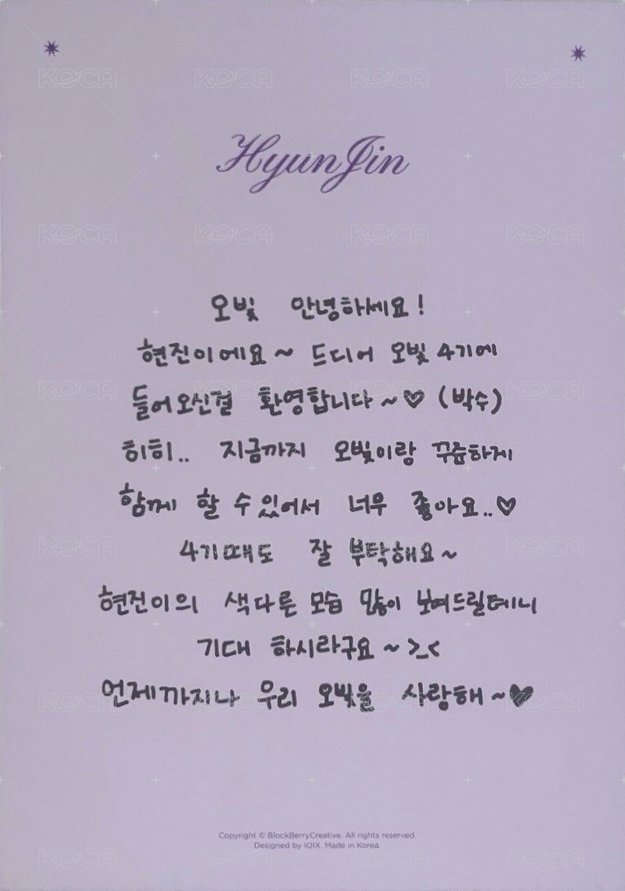 HyunJin
오빛 안녕하세요!
현진이에요~ 드디어 오빛 4기에
들어오신걸 환영합니다~♡ (박수)
히히.. 지금까지 오빛이랑 꾸준하게
함께 할 수 있어서 너무 좋아요..♡
4기때도 잘 부탁해요~
현진이의 색다른 모습 많이 보여드릴테니
기대 하시라구요~>_<
언제까지나 우리 오빛을 사랑해~♥
Copyright © BlockBerryCreative. All rights reserved.
Designed by IOIX. Made in Korea.